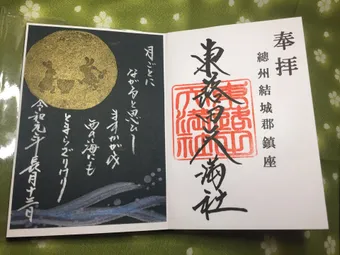 奉拝
總州結城郡鎮座
東蕗田天満社
月ごとに
ながると思ひし
ますかゞみ
西の海にも
とまらざりけり
令和元年 長月十三日